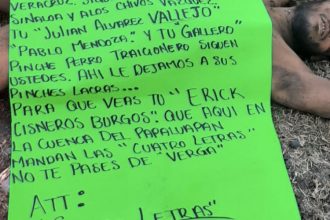 VERACRUZ. SIGU
SINALOA Y ALOS CHIVOS VAZQUEZ
TU "JULIAN ALVAREZ VALLEJO"
"PABLO MENDOZA" Y TU "GALLERO"
PINCHE PERRO TRAICIONERO SIGUEN
USTEDES. AHI LE DEJAMOS A SUS
PINCHES LACRAS...
PARA QUE VEAS TU "ERICK
CISNEROS BURGOS" QUE AQUI EN
LA CUENCA DEL PAPALUAPAN
MANDAN LAS "CUATRO LETRAS"
NO TE PASES DE "VERGA"
ATT:
LETRAS"